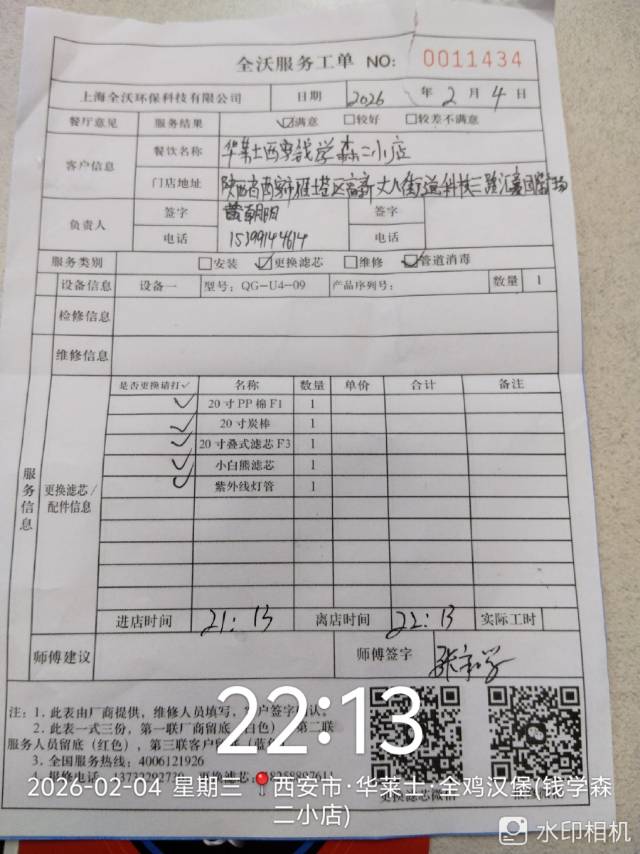 全沃服务工单 NO: 0011434
上海全沃环保科技有限公司 日期 2026 年 2 月 4 日
餐厅意见 服务结果 ☑满意 □较好 □较差不满意
客户信息 餐饮名称 华莱士西安钱学森二小店
门店地址 陕西省西安市雁塔区高新丈八街道科技三路汇豪国际广场
负责人 签字 黄朝阳 签字
电话 15399144614 电话
服务类别 □安装 ☑更换滤芯 □维修 ☑管道消毒
设备信息 设备一 型号: QG-U4-09 产品序列号: 数量 1
检修信息
维修信息
服务信息
更换滤芯/配件信息
是否更换请打✓ 名称 数量 单价 合计 备注
✓ 20寸PP棉F1 1
✓ 20寸炭棒 1
✓ 20寸叠式滤芯F3 1
✓ 小白熊滤芯 1
✓ 紫外线灯管 1
进店时间 21:13 离店时间 22:13 实际工时
师傅建议 师傅签字
注: 1. 此表由厂商提供, 维修人员填写, 客户签字确认;
2. 此表一式三份, 第一联厂商留底(白色) 第二联
服务人员留底(红色), 第三联客户留底(蓝色)
3. 全国服务热线: 4006121926
更换滤芯微信
22:13
2026-02-04 星期三 西安市·华莱士·全鸡汉堡(钱学森
二小店)
水印相机